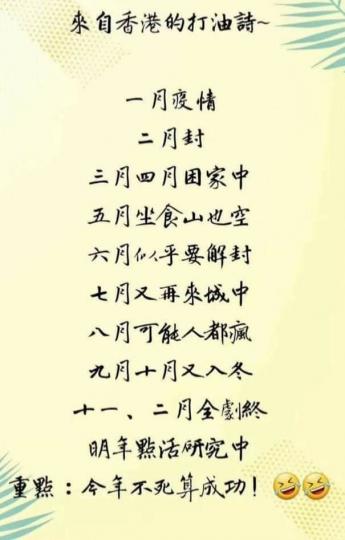 來自香港的打油詩~
一月疫情
二月封
三月四月困家中
五月坐食山也空
六月似乎要解封
七月又再來城中
八月可能人都瘋
九月十月又入冬
十一、二月全劇終
明年點活研究中
重點：今年不死算成功！🤣🤣